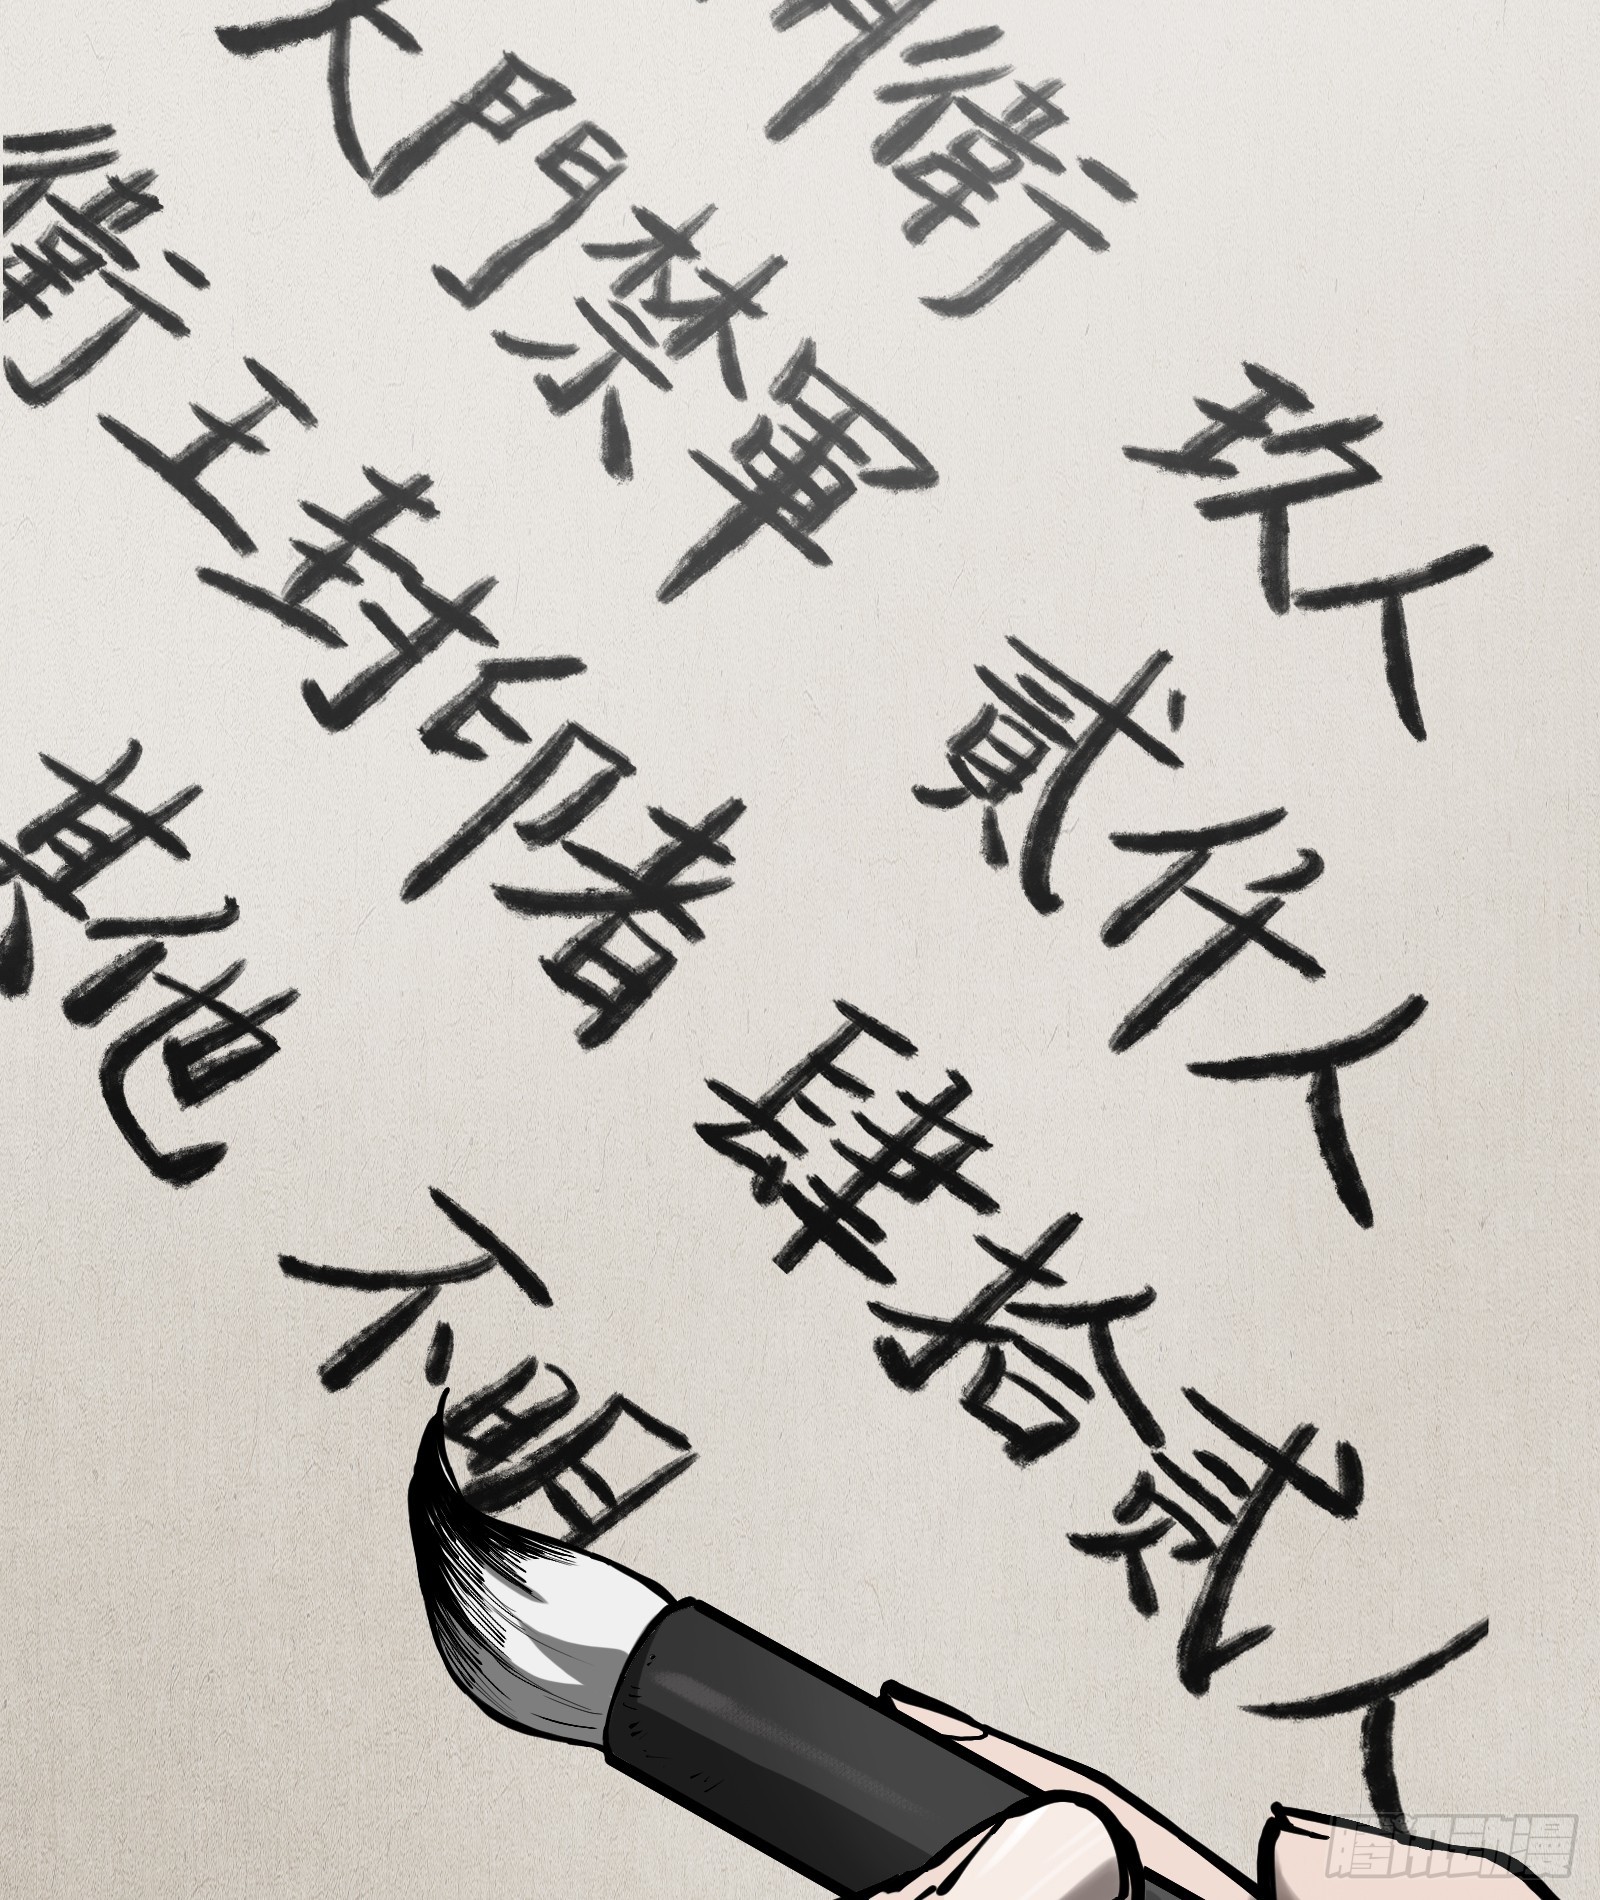 衛 玖人
門禁軍 貳仟人
衛王封印者 肆拾贰人
其他 不明
腾讯动漫